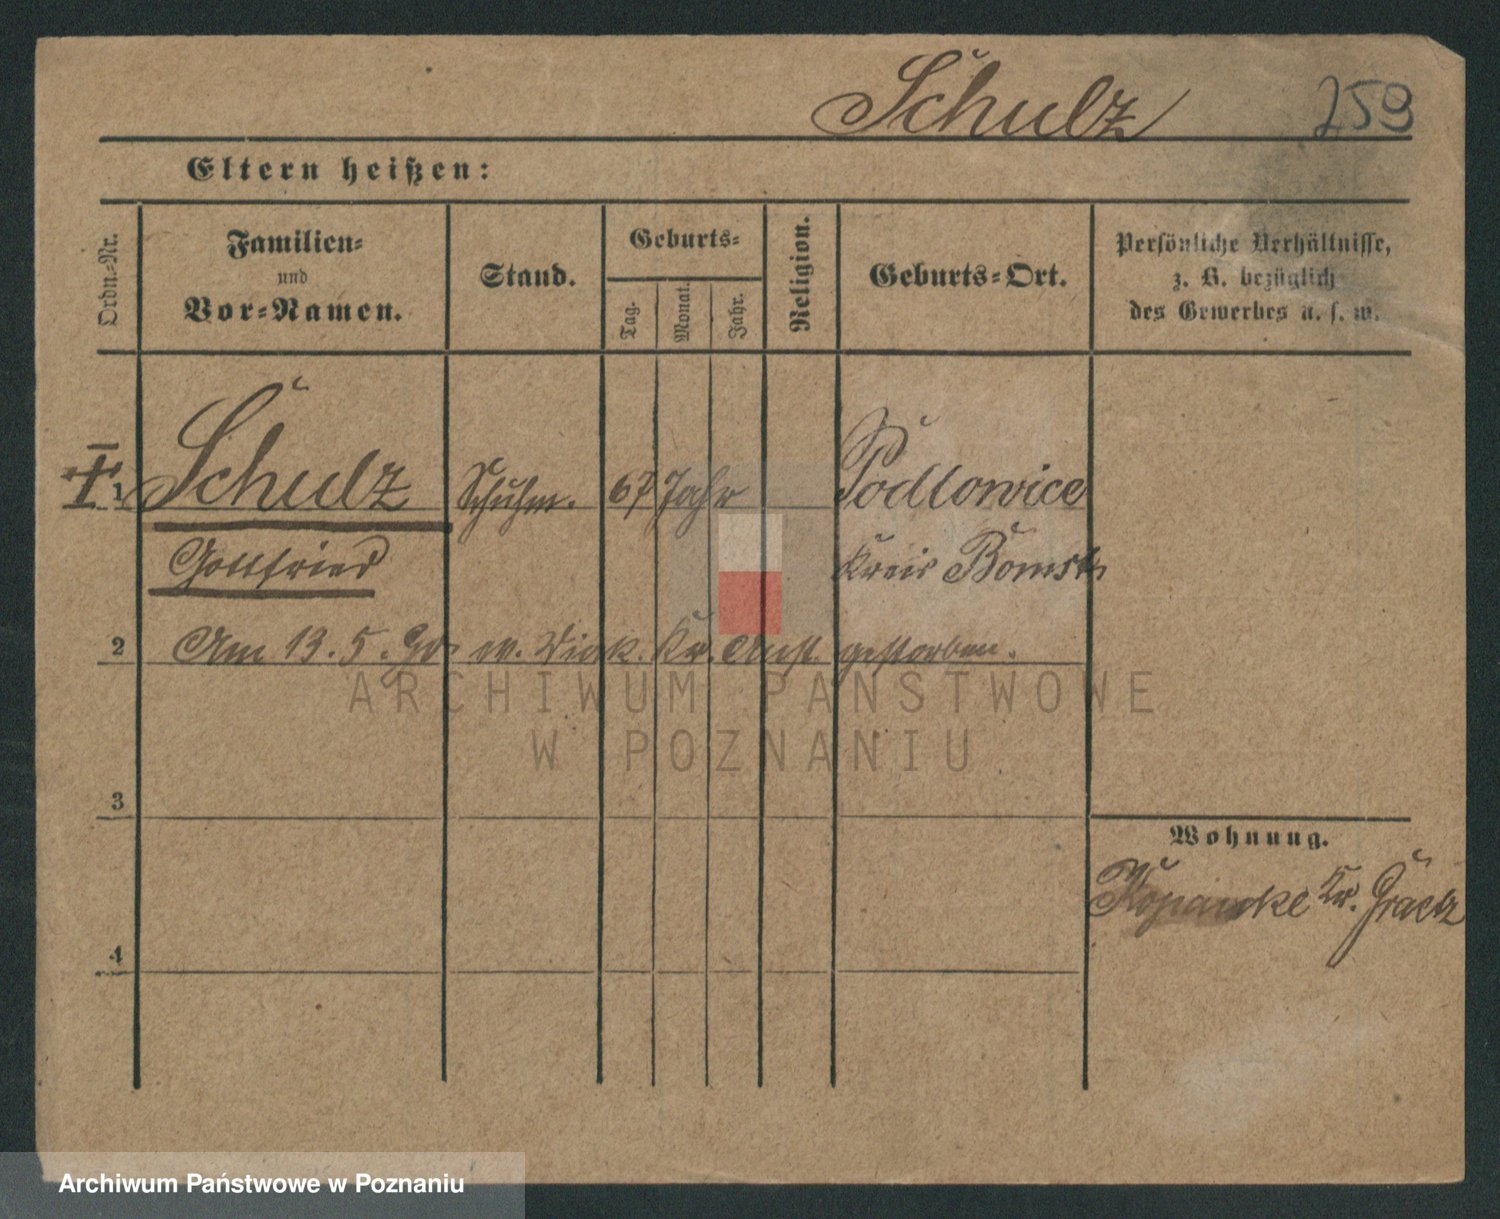 Schulz 259
Eltern heißen:
Ordn.-Nr.
Familien-
und
Vor-Namen.
Stand.
Geburts-
Tag.
Monat.
Jahr.
Religion.
Geburts-Ort.
Persönliche Verhältnisse,
z. B. bezüglich
des Gewerbes u. s. w.
1 Schulz Schuhm. 67 Jahr Podlowice
Gottfried Kreis Bomst
2 Am 13. 5. in. Diak. Kr. Anst. gestorben.
ARCHIWUM PAŃSTWOWE
W POZNANIU
3
Wohnung.
Kopanke Kr. Grätz
4
Archiwum Państwowe w Poznaniu